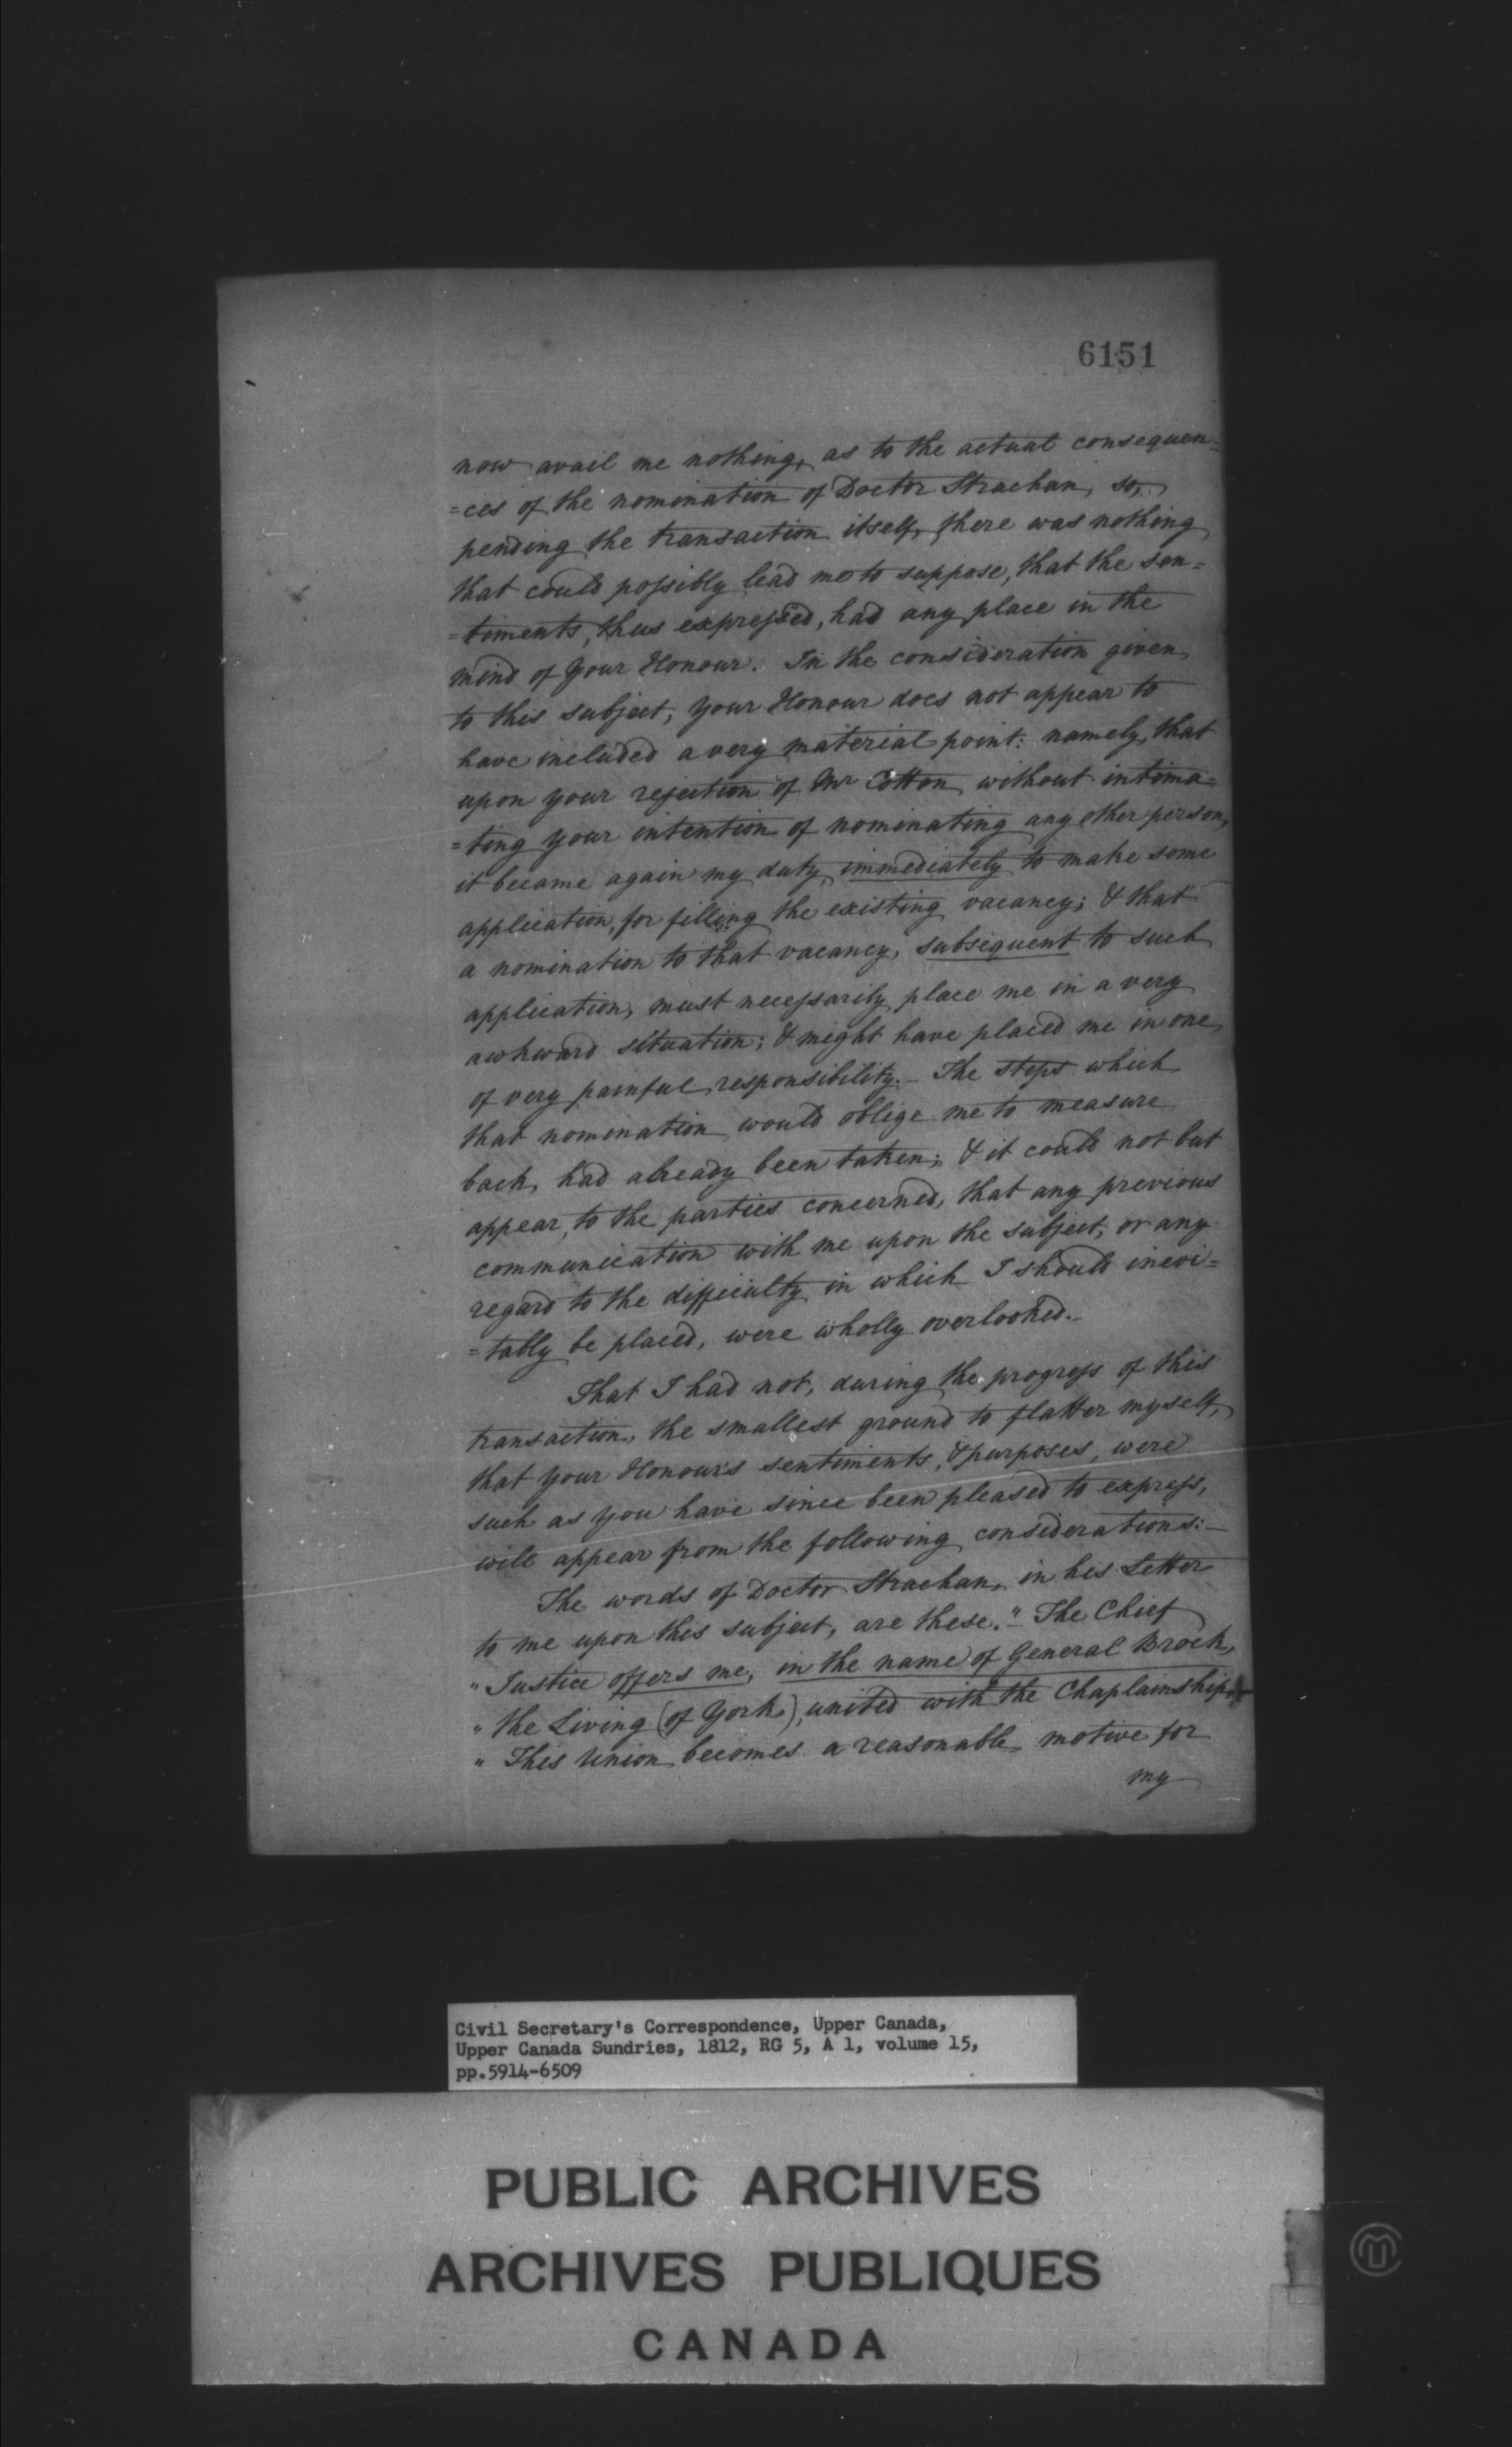 6151
now avail me nothing, as to the actual consequen=
=ces of the nomination of Doctor Strachan, so,
pending the transaction itself, there was nothing
that could possibly lead me to suppose, that the sen=
=timents, thus expressed, had any place in the
mind of Your Honour. In the consideration given
to this subject, Your Honour does not appear to
have included a very material point: namely, that
upon your rejection of Mr Cotton, without intima=
=ting your intention of nominating any other person,
it became again my duty, immediately to make some
application, for filling the existing vacancy; & that
a nomination to that vacancy, subsequent to such
application, must necessarily place me in a very
awkward situation; & might have placed me in one
of very painful responsibility. - The steps which
that nomination would oblige me to measure
back, had already been taken; & it could not but
appear, to the parties concerned, that any previous
communication with me upon the subject, or any
regard to the difficulty in which I should inevi=
=tably be placed, were wholly overlooked. -
That I had not, during the progress of this
transaction, the smallest ground to flatter myself,
that Your Honour's sentiments, & purposes, were
such as you have since been pleased to express,
will appear from the following considerations: -
The words of Doctor Strachan, in his Letter
to me upon this subject, are these. - " The Chief
" Justice offers me, in the name of General Brock,
" the Living (of York), united with the Chaplainship.
" This Union becomes a reasonable motive for
my
Civil Secretary's Correspondence, Upper Canada,
Upper Canada Sundries, 1812, RG 5, A 1, volume 15,
pp.5914-6509
PUBLIC ARCHIVES
ARCHIVES PUBLIQUES
CANADA